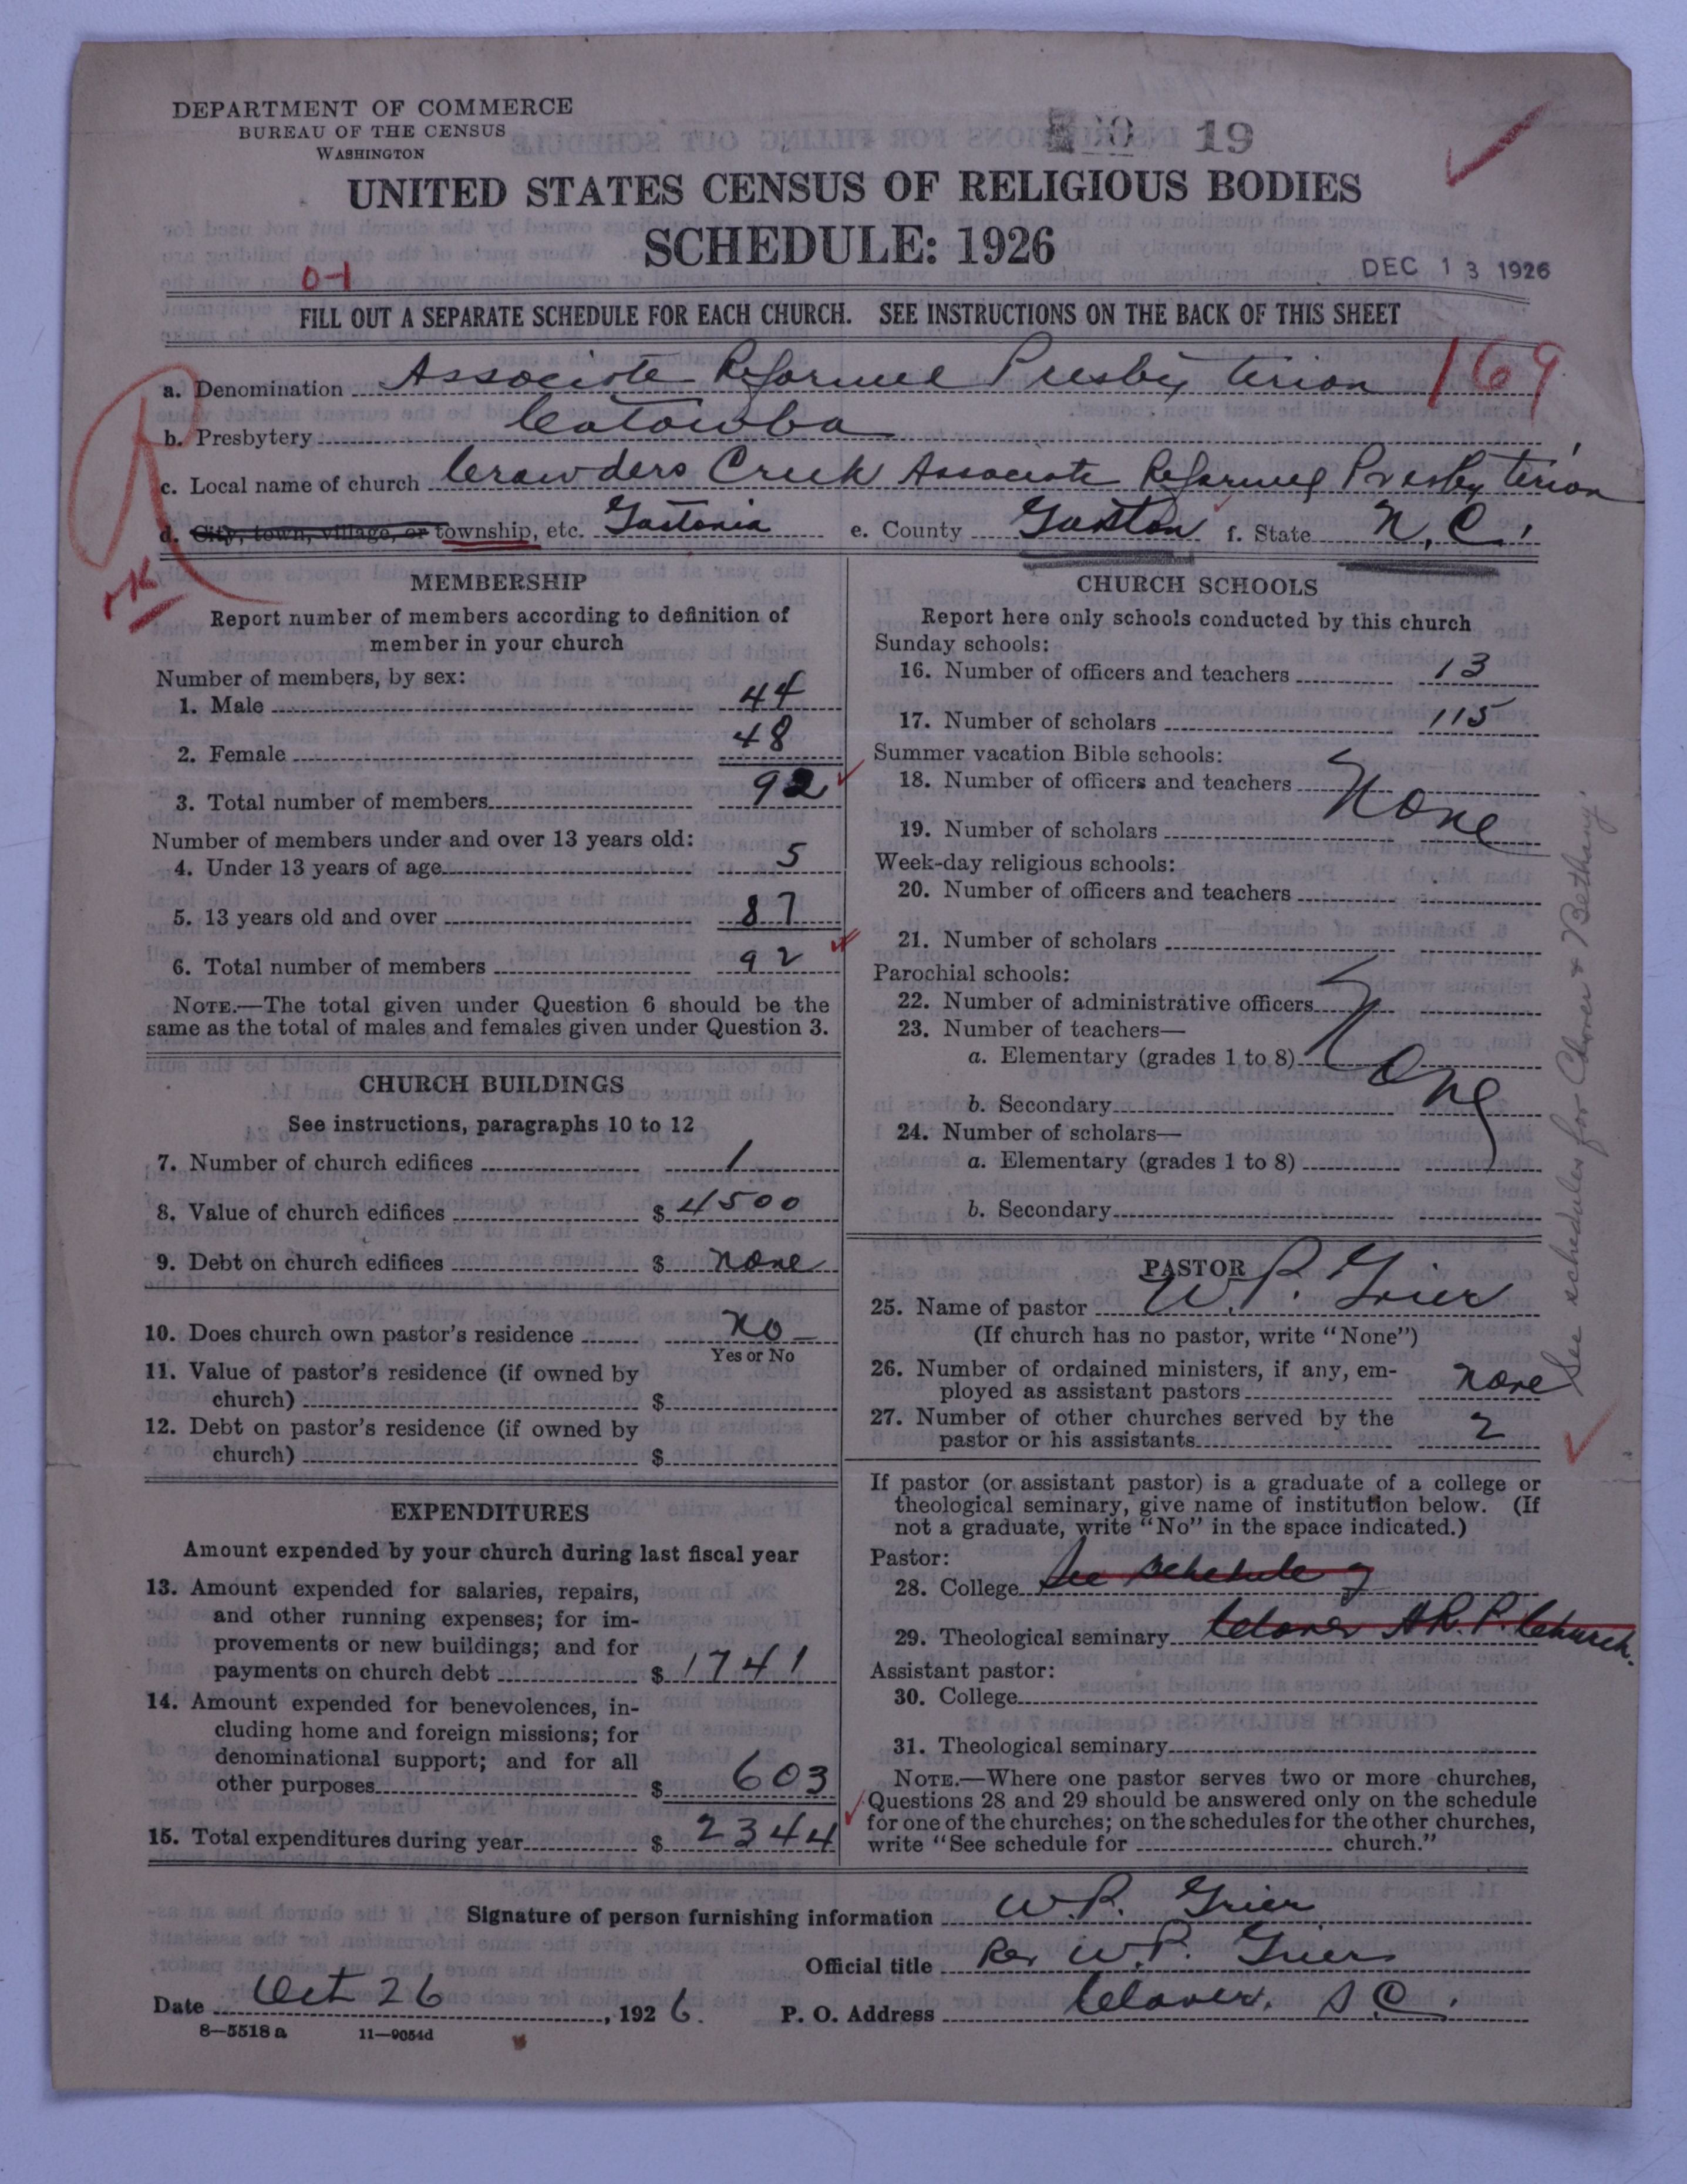 DEPARTMENT OF COMMERCE
BUREAU OF THE CENSUS
WASHINGTON
19
UNITED STATES CENSUS OF RELIGIOUS BODIES
SCHEDULE: 1926
DEC 13 1926
0-1
FILL OUT A SEPARATE SCHEDULE FOR EACH CHURCH. SEE INSTRUCTIONS ON THE BACK OF THIS SHEET
a. Denomination Associate Reformed Presbyterian 169
b. Presbytery Catawba
c. Local name of church Crowders Creek Associate Reformed Presbyterian
d. City, town, village, or township, etc. Gastonia e. County Gaston f. State N. C.
MEMBERSHIP
Report number of members according to definition of
member in your church
Number of members, by sex:
1. Male 44
2. Female 48
3. Total number of members 92
Number of members under and over 13 years old:
4. Under 13 years of age 5
5. 13 years old and over 87
6. Total number of members 92
NOTE.—The total given under Question 6 should be the
same as the total of males and females given under Question 3.
CHURCH BUILDINGS
See instructions, paragraphs 10 to 12
7. Number of church edifices 1
8. Value of church edifices $ 4500
9. Debt on church edifices $ none
10. Does church own pastor's residence no
Yes or No
11. Value of pastor's residence (if owned by
church) $
12. Debt on pastor's residence (if owned by
church) $
EXPENDITURES
Amount expended by your church during last fiscal year
13. Amount expended for salaries, repairs,
and other running expenses; for im-
provements or new buildings; and for
payments on church debt $ 1741
14. Amount expended for benevolences, in-
cluding home and foreign missions; for
denominational support; and for all
other purposes $ 603
15. Total expenditures during year $ 2344
CHURCH SCHOOLS
Report here only schools conducted by this church
Sunday schools:
16. Number of officers and teachers 13
17. Number of scholars 115
Summer vacation Bible schools:
18. Number of officers and teachers None
19. Number of scholars
Week-day religious schools:
20. Number of officers and teachers
21. Number of scholars
Parochial schools:
22. Number of administrative officers None
23. Number of teachers—
a. Elementary (grades 1 to 8)
b. Secondary
24. Number of scholars—
a. Elementary (grades 1 to 8)
b. Secondary
PASTOR
25. Name of pastor W. P. Grier
(If church has no pastor, write "None")
26. Number of ordained ministers, if any, em-
ployed as assistant pastors none
27. Number of other churches served by the
pastor or his assistants 2
If pastor (or assistant pastor) is a graduate of a college or
theological seminary, give name of institution below. (If
not a graduate, write "No" in the space indicated.)
Pastor:
28. College See schedule of
29. Theological seminary Clover A.R.P. Church.
Assistant pastor:
30. College
31. Theological seminary
NOTE.—Where one pastor serves two or more churches,
Questions 28 and 29 should be answered only on the schedule
for one of the churches; on the schedules for the other churches,
write "See schedule for church."
See schedules for Clover & Bethany.
Signature of person furnishing information W. P. Grier
Official title Rev W. P. Grier
Date Oct 26, 1926. P. O. Address Clover, S. C.
8—5518 a 11—9054d